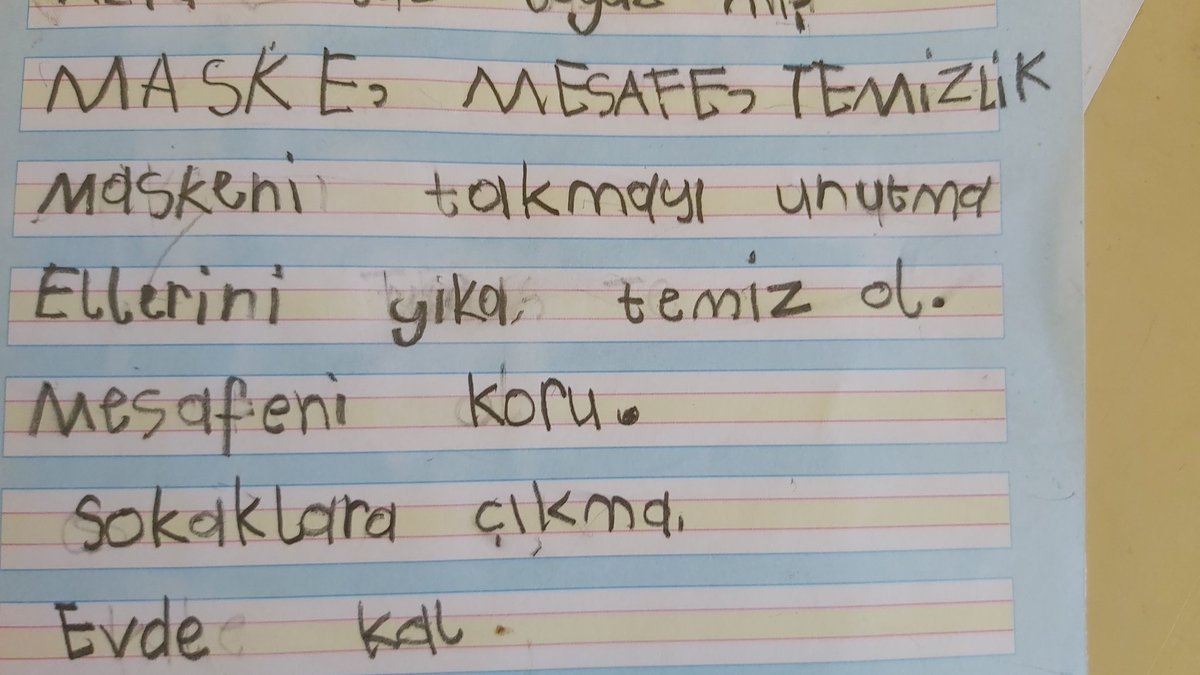 MASKE, MESAFE, TEMİZLİK
Maskeni takmayı unutma
Ellerini yika, temiz ol.
Mesafeni koru.
Sokaklara çıkma.
Evde kal.